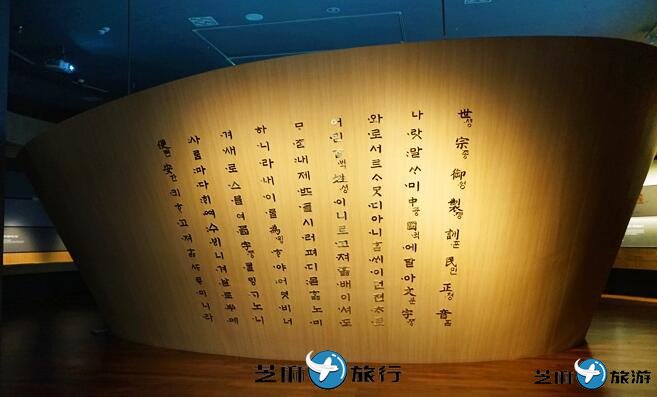 世솅宗종御엉製졩訓훈民민正졍音ᅙᅳᆷ
나랏말ᄊᆞ미中듕國귁에달아文문字ᄍᆞᆼ
와로서르ᄉᆞᄆᆞᆺ디아니ᄒᆞᆯᄊᆡ이런젼ᄎᆞ로
어린百ᄇᆡᆨ姓셩이니르고져호ᇙ배이셔도
ᄆᆞᄎᆞᆷ내제ᄠᅳ들시러펴디몯ᄒᆞᇙ노미
하니라내이ᄅᆞᆯ為윙ᄒᆞ야어엿비너
겨새로스믈여듧字ᄍᆞᆼᄅᆞᆯᄆᆡᇰᄀᆞ노니
사ᄅᆞᆷ마다ᄒᆡᅇᅧ수ᄫᅵ니겨날로ᄡᅮ메
便뼌安ᅙᅡᆫ킈ᄒᆞ고져ᄒᆞᇙᄯᆞᄅᆞ미니라
芝麻旅行
芝麻旅游